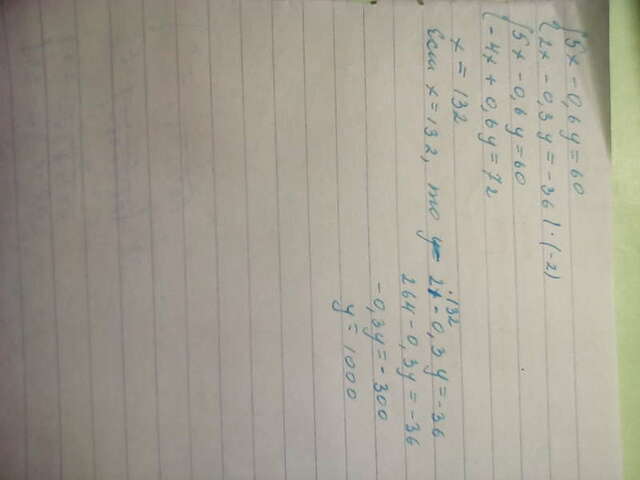 {5x - 0,6y = 60
{2x - 0,3y = -36 | · (-2)
{5x - 0,6y = 60
{-4x + 0,6y = 72
x = 132
Если x = 132, то y 2·132 - 0,3y = -36
264 - 0,3y = -36
-0,3y = -300
y = 1000